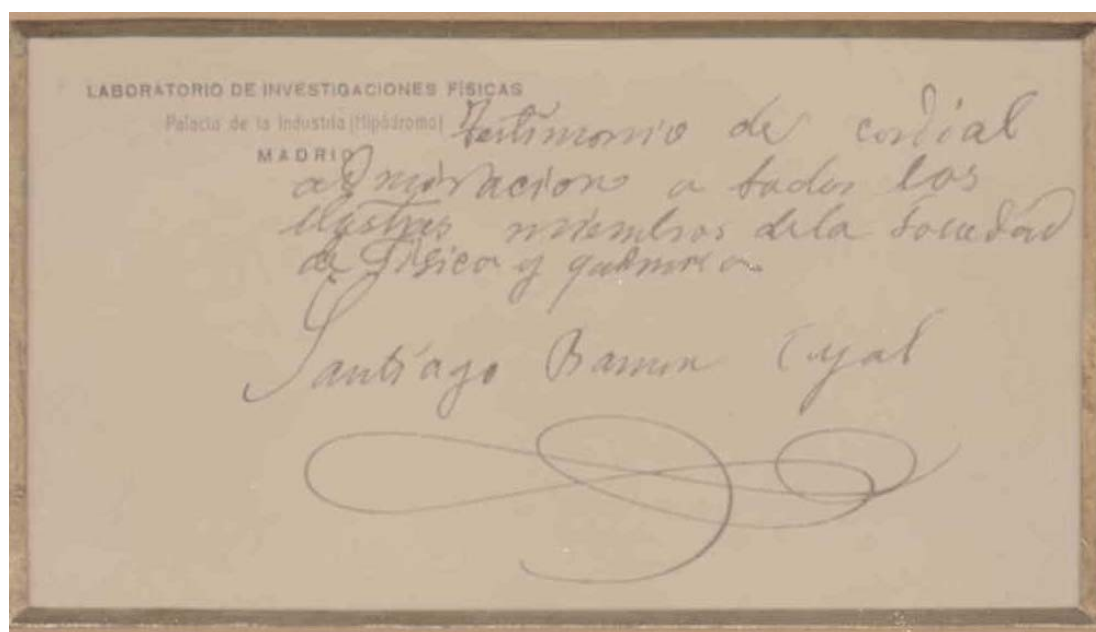 LABORATORIO DE INVESTIGACIONES FÍSICAS
Palacio de la Industria (Hipódromo)
MADRID
Testimonio de cordial
admiracion a todos los
ilustres miembros de la Sociedad
de Física y quimica
Santiago Ramon Cajal